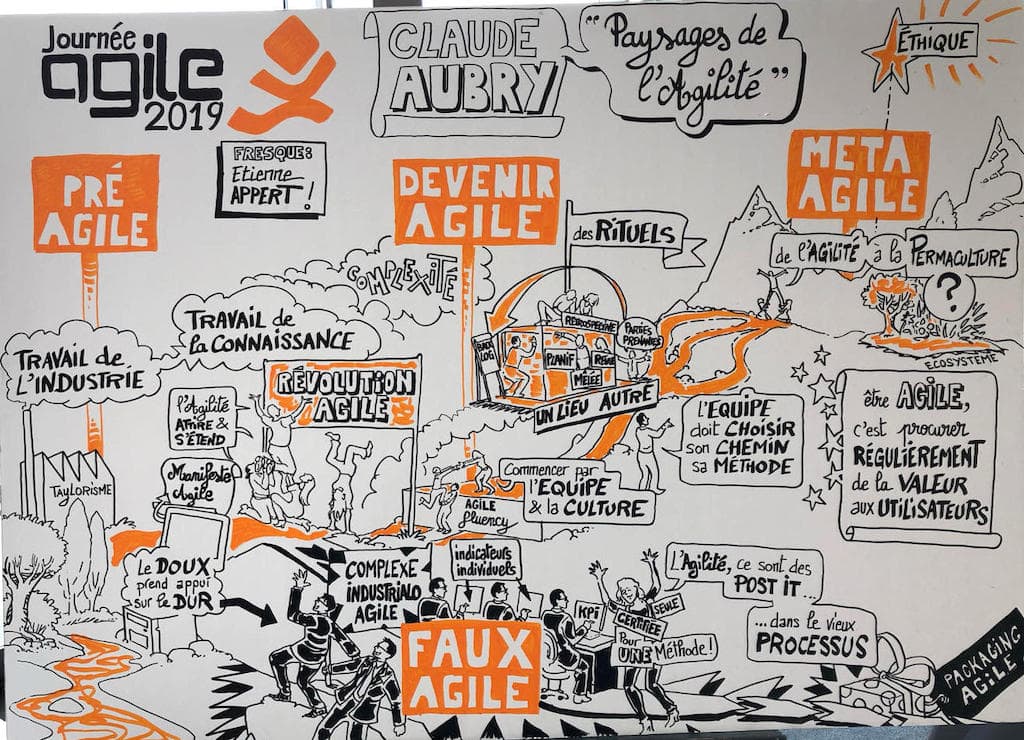 Journée
agile
2019
CLAUDE
AUBRY
"Paysages de
l'Agilité"
ÉTHIQUE
FRESQUE:
Etienne
APPERT!
PRÉ
AGILE
DEVENIR
AGILE
META
AGILE
des RITUELS
de l'AGILITÉ à la PERMACULTURE
?
ECOSYSTÈME
COMPLEXITÉ
TRAVAIL de
L'INDUSTRIE
TRAVAIL de
la CONNAISSANCE
RÉVOLUTION
AGILE
l'Agilité
ATTIRE &
S'ÉTEND
Manifeste
Agile
TAYLORISME
BACK
LOG
RÉTROSPECTIVE
PARTIES
PRENANTES
PLANIF
REVUE
MÊLÉE
UN LIEU AUTRE
L'EQUIPE
doit CHOISIR
son CHEMIN
sa MÉTHODE
Commencer par
l'EQUIPE
& la CULTURE
AGILE
fluency
être AGILE,
c'est procurer
RÉGULIÈREMENT
de la VALEUR
aux UTILISATEURS
Le DOUX
prend appui
sur le DUR
COMPLEXE
INDUSTRIALO
AGILE
indicateurs
individuels
KPI
FAUX
AGILE
CERTIFIÉE
SEULE
Pour
UNE Méthode!
L'Agilité, ce sont des
POST IT...
...dans le vieux
PROCESSUS
PACKAGING
AGILE